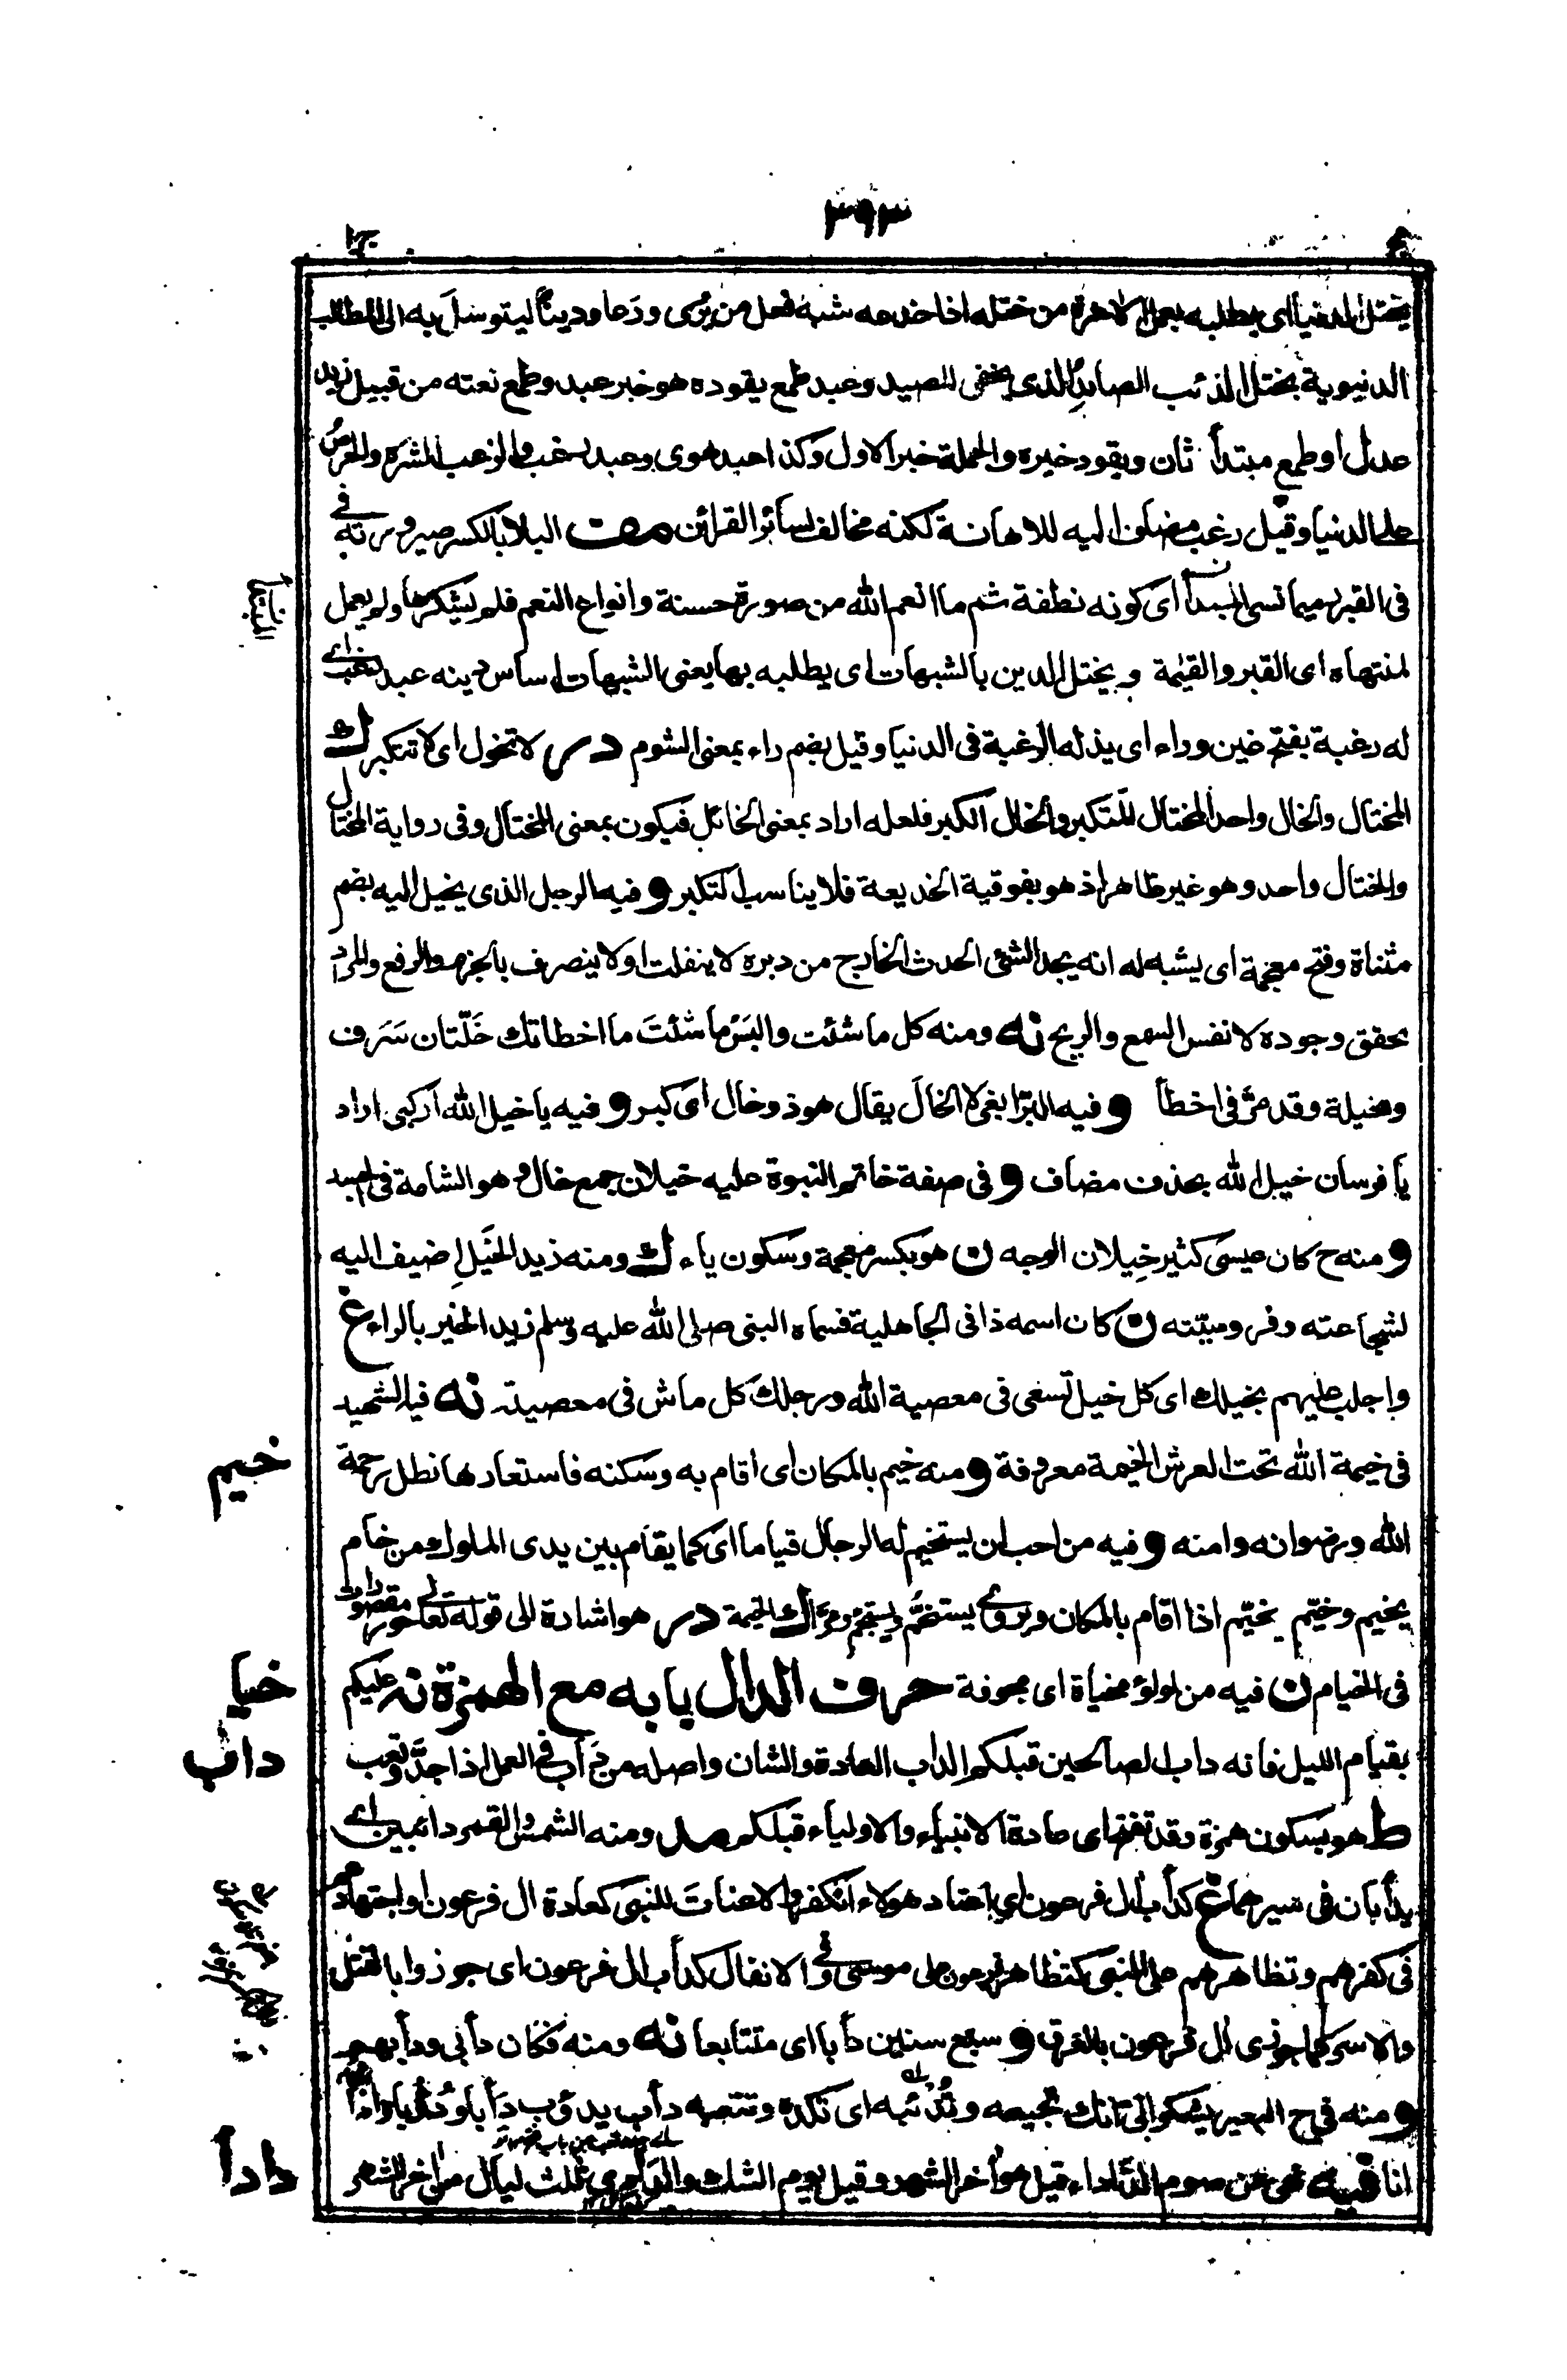 ٣٩٣
ج١
يختل الدنيا اى يطلبه بعمل الاخرة من ختله اذا خدعه شبه فعل من يرى ورعا ودينا ليتوسل به الى المطالب
الدنيوية بختل الذئب الصائد الذى يخفى للصيد وعبد طمع يقوده هو خبر عبد وطمع نعته من قبيل زيد
عدل او طمع مبتدأ ثان ويقود خبره والجملة خبر الاول وكذا عبد هوى وعبد رغب والرغب الشره والحرص
على الدنيا وقيل رغب مضاف اليه للاهانة لكنه مخالف لسائر القرائن مف البلا بالكسر صيرورته
فى القبر رميما نسى المبتدأ اى كونه نطفة ثم ما انعم الله من صورة حسنة وانواع النعم فلم يشكرها ولم يعمل
لمنتهاه اى القبر والقيمة و يختل الدين بالشبهات اى يطلبه بها يعنى الشبهات اساس دينه عبد رغب اى
له رغبة بفتح غين وراء اى يذله الرغبة فى الدنيا وقيل بضم راء بمعنى الشوم در لا تخول اى لا تتكبر ك
المختال والخال واحد المختال المتكبر والخال الكبر فلعله اراد بمعنى الخائل فيكون بمعنى المختال وفى رواية المختال
والختال واحد وهو غير ظاهر اذ هو بفوقية الخديعة فلا يناسب التكبر و فيه الرجل الذى يخيل اليه بضم
مثناة وفتح معجمة اى يشبه له انه يجد الشئ الحدث الخارج من دبره لا ينفلت او لا ينصرف بالجزم والرفع والمراد
تحقق وجوده لا نفس السمع والريح نه ومنه كل ما شئت والبس ما شئت ما اخطاتك خلتان سرف
ومخيلة وقد مر فى اخطأ و فيه البر ابغى لا الخال يقال هو ذو خال اى كبر و فيه يا خيل الله اركبى اراد
يا فرسان خيل الله بحذف مضاف و فى صفة خاتم النبوة عليه خيلان جمع خال وهو الشامة فى الجسد
و منه ح كان عيسى كثير خيلان الوجه ن هو بكسر معجمة وسكون ياء ك ومنه زيد الخيل اضيف اليه
لشجاعته وفروسيته ن كان اسمه ذا فى الجاهلية فسماه النبى صلى الله عليه وسلم زيد الخير بالراء غ
واجلب عليهم بخيلك اى كل خيل تسعى فى معصية الله ورجلك كل ماش فى معصيته نه فيه الشهيد
خيم
فى خيمة الله تحت العرش الخيمة معروفة و منه خيم بالمكان اى اقام به وسكنه فاستعارها لظل رحمة
الله ورضوانه وامنه و فيه من احب ان يستخيم له الرجال قياما اى كما يقام بين يدى الملوك ومن خام
يخيم وخيّم يخيّم اذا اقام بالمكان وروى يستخمّ ويستجم ومرّا ك الخيمة در هو اشارة الى قوله تعالى حور مقصورات
خيا
فى الخيام ن فيه من لولؤ مخياة اى مجوفة حرف الدال بابه مع الهمزة نه عليكم
داب
بقيام الليل فانه داب الصالحين قبلكم الداب العادة والشان واصله من دَأَب فى العمل اذا جدّ وتعب
ط هو بسكون همزة وقد تفتح اى عادة الانبياء والاولياء قبلكم مد ومنه الشمس والقمر دائبين اى
يدأبان فى سيرهما غ كدأب ال فرعون اى اعتاد هولاء الكفر والاعنات للنبى كعادة ال فرعون او اجتهادهم
فى كفرهم وتظاهرهم على النبى كتظاهر ال فرعون على موسى وفى الانفال كدأب ال فرعون اى جوزوا بالقتل
والاسر كما جوزى ال فرعون بالغرق و سبع سنين دأبا اى متتابعا نه ومنه فكان دأبى ودأبهم
و منه فى ح البعير يشكو الى انك تجيعه وتُدْئبه اى تكده وتتعبه دأب يدؤب دَأبا ودُؤبا واذا
دادأ
انا فيه نهى عن صوم الدأداء قيل هو اخر الشهر وقيل يوم الشك والدادى ثلث ليال من اخر الشهر